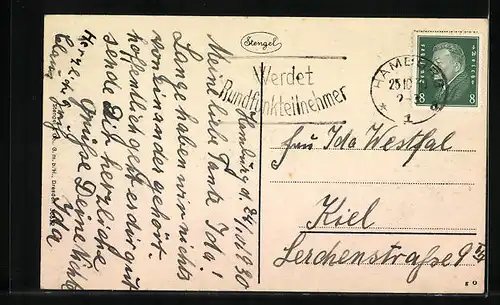 Stengel
Hamburg d. 24/10 1930
Meine liebe Tante Ida!
Lange haben wir nichts
von einander gehört.
hoffentlich geht es dir gut
sende Dir herzliche
Grüße Deine Nichte
Ida
Herzl.
Claus
Werdet
Rundfunkteilnehmer
HAMBURG
25.10.30
1
DEUTSCHES REICH
8 8
Frau Ida Westfal
Kiel
Lerchenstraße 9
G.m.b.H., Dresden